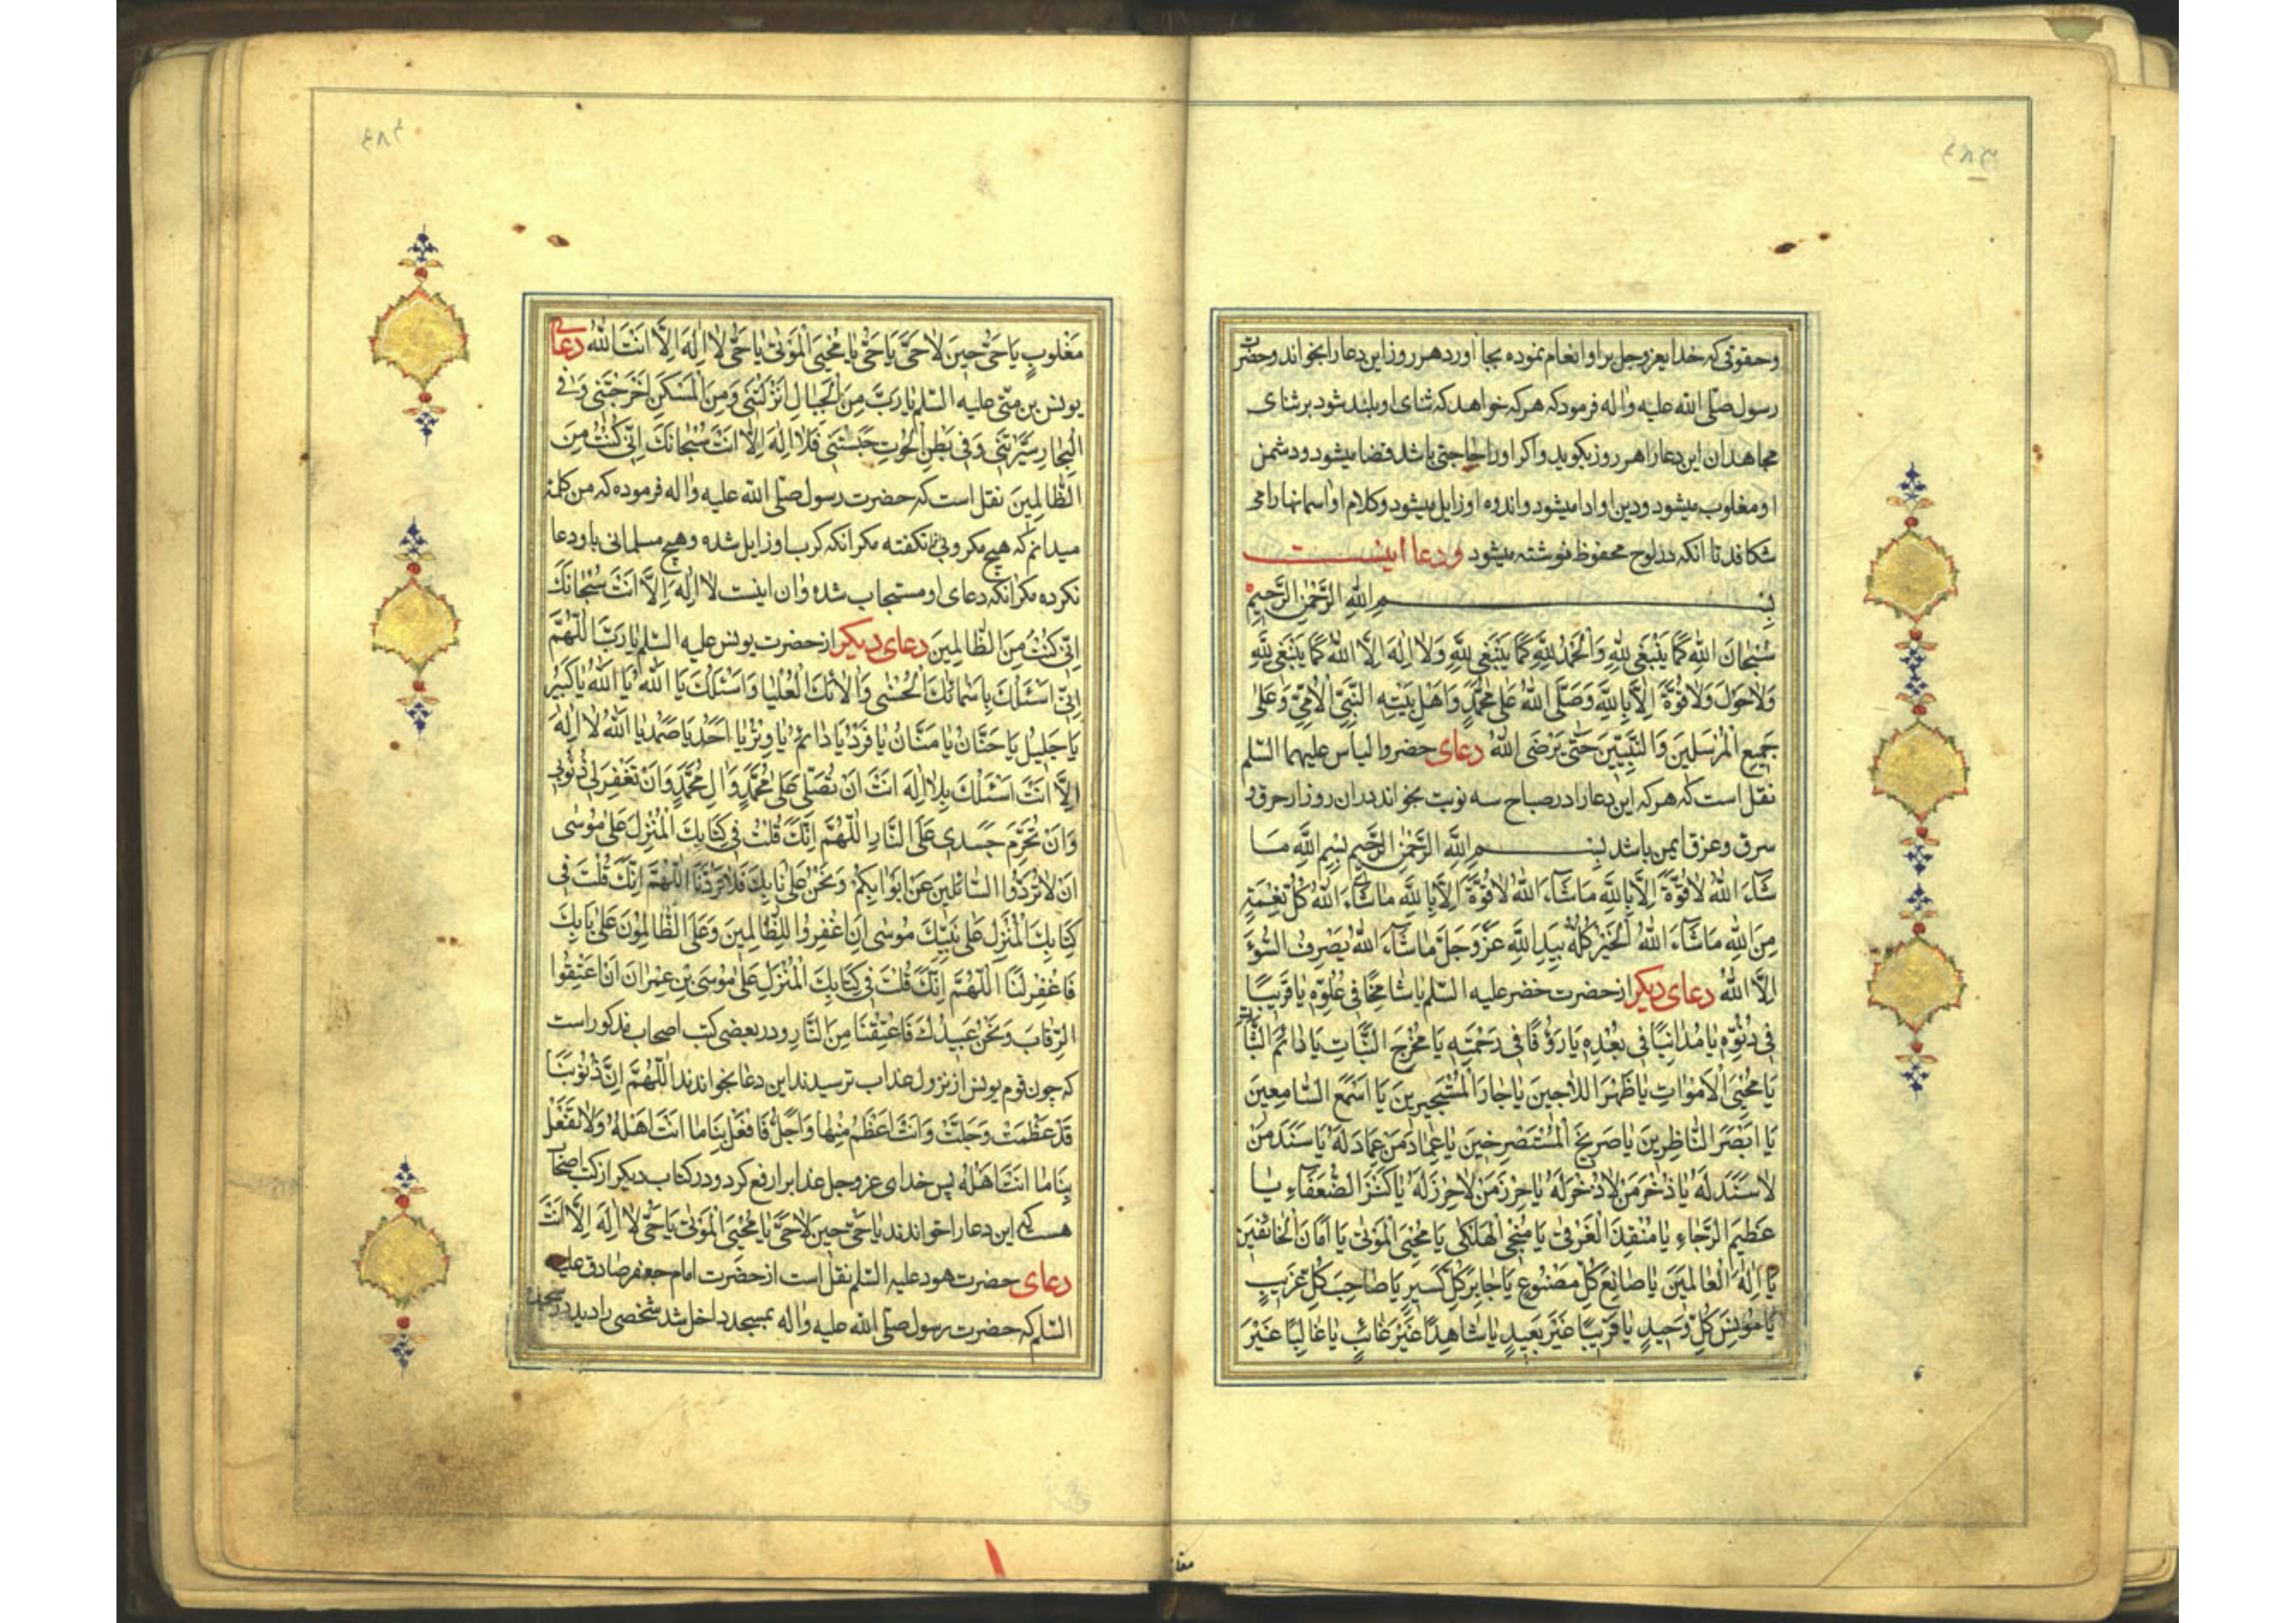 ۴۸۳
وحقوقی که خدایعزوجل براو انعام نموده بجا اورد هر روز این دعا را بخواند وحضرت
رسول صلی الله علیه واله فرمود که هر که خواهد که ثنای او بلند شود بر ثنای
مجاهدان این دعا را هر روز بکوید واکر او را حاجتی باشد قضا میشود ودشمن
او مغلوب میشود ودین او ادا میشود واندوه او زایل میشود وکلام او اسمانها را می
شکافد تا انکه در لوح محفوظ نوشته میشود ودعا اینست
بِسْمِ اللهِ الرَّحْمٰنِ الرَّحِيمِ
سُبْحَانَ اللهِ كَمَا يَنْبَغِي لِلّهِ وَالْحَمْدُ لِلّهِ كَمَا يَنْبَغِي لِلّهِ وَلَا اِلٰهَ اِلَّا اللهُ كَمَا يَنْبَغِي لِلّهِ
وَلَا حَوْلَ وَلَا قُوَّةَ اِلَّا بِاللهِ وَصَلَّى اللهُ عَلٰى مُحَمَّدٍ وَاَهْلِ بَيْتِهِ النَّبِيِّ الْاُمِّيِّ وَعَلٰى
جَمِيعِ الْمُرْسَلِينَ وَالنَّبِيِّينَ حَتّٰى يَرْضَى اللهُ دعای حضر والیاس علیهما السلم
نقل است که هر که این دعا را در صباح سه نوبت بخواند در ان روز از حرق و
سرق وغرق ایمن باشد بِسْمِ اللهِ الرَّحْمٰنِ الرَّحِيمِ بِسْمِ اللهِ مَا
شَاءَ اللهُ لَا قُوَّةَ اِلَّا بِاللهِ مَاشَاءَ اللهُ لَا قُوَّةَ اِلَّا بِاللهِ مَاشَاءَ اللهُ كُلُّ نِعْمَةٍ
مِنَ اللهِ مَاشَاءَ اللهُ الْخَيْرُ كُلُّهُ بِيَدِ اللهِ عَزَّ وَجَلَّ مَاشَاءَ اللهُ لَا يَصْرِفُ السُّوءَ
اِلَّا اللهُ دعای دیکر از حضرت خضر علیه السلم يَا شَامِخًا فِي عُلُوِّهِ يَا قَرِيبًا
فِي دُنُوِّهِ يَا مُدَانِيًا فِي بُعْدِهِ يَا رَؤُفًا فِي رَحْمَتِهِ يَا مُخْرِجَ النَّبَاتِ يَا دَائِمَ الثَّبَاتِ
يَا مُحْيِيَ الْاَمْوَاتِ يَا ظَهْرَ اللَّاجِينَ يَا جَارَ الْمُسْتَجِيرِينَ يَا اَسْمَعَ السَّامِعِينَ
يَا اَبْصَرَ النَّاظِرِينَ يَا صَرِيخَ الْمُسْتَصْرِخِينَ يَا عِمَادَ مَنْ لَا عِمَادَ لَهُ يَا سَنَدَ مَنْ
لَا سَنَدَ لَهُ يَا ذُخْرَ مَنْ لَا ذُخْرَ لَهُ يَا حِرْزَ مَنْ لَا حِرْزَ لَهُ يَا كَنْزَ الضُّعَفَاءِ يَا
عَظِيمَ الرَّجَاءِ يَا مُنْقِذَ الْغَرْقٰى يَا مُنْجِيَ الْهَلْكٰى يَا مُحْيِيَ الْمَوْتٰى يَا اَمَانَ الْخَائِفِينَ
يَا اِلٰهَ الْعَالَمِينَ يَا صَانِعَ كُلِّ مَصْنُوعٍ يَا جَابِرَ كُلِّ كَسِيرٍ يَا صَاحِبَ كُلِّ غَرِيبٍ
يَا مُونِسَ كُلِّ وَحِيدٍ يَا قَرِيبًا غَيْرَ بَعِيدٍ يَا شَاهِدًا غَيْرَ غَائِبٍ يَا غَالِبًا غَيْرَ
۴۸۴
مَغْلُوبٍ يَا حَيُّ حِينَ لَا حَيَّ يَا حَيُّ يَا مُحْيِيَ الْمَوْتٰى يَا حَيُّ لَا اِلٰهَ اِلَّا اَنْتَ اللهُ دعای
یونس بن متی علیه السلم يَا رَبِّ مِنَ الْجِبَالِ اَنْزَلْتَنِي وَمِنَ الْمَسْكَنِ اَخْرَجْتَنِي وَفِي
الْبِحَارِ سَيَّرْتَنِي وَفِي بَطْنِ الْحُوتِ حَبَسْتَنِي فَلَا اِلٰهَ اِلَّا اَنْتَ سُبْحَانَكَ اِنِّي كُنْتُ مِنَ
الظَّالِمِينَ نقل است که حضرت رسول صلی الله علیه واله فرموده که من کلمهٔ
میدانم که هیچ مکروبی نکفته مکر انکه کرب او زایل شده وهیچ مسلمانی باو دعا
نکرده مکر انکه دعای او مستجاب شده وان اینست لَا اِلٰهَ اِلَّا اَنْتَ سُبْحَانَكَ
اِنِّي كُنْتُ مِنَ الظَّالِمِينَ دعای دیکر از حضرت یونس علیه السلم يَا رَبَّنَا اَللّٰهُمَّ
اِنِّي اَسْئَلُكَ بِاَسْمَائِكَ الْحُسْنٰى وَاٰلَائِكَ الْعُلْيَا وَاَسْئَلُكَ يَا اَللهُ يَا اَللهُ يَا كَبِيرُ
يَا جَلِيلُ يَا حَنَّانُ يَا مَنَّانُ يَا فَرْدُ يَا دَائِمُ يَا وِتْرُ يَا اَحَدُ يَا صَمَدُ يَا اَللهُ لَا اِلٰهَ
اِلَّا اَنْتَ اَسْئَلُكَ بِلَا اِلٰهَ اَنْتَ اَنْ تُصَلِّيَ عَلٰى مُحَمَّدٍ وَاٰلِ مُحَمَّدٍ وَاَنْ تَغْفِرَ لِي ذُنُوبِي
وَاَنْ تُحَرِّمَ جَسَدِي عَلَى النَّارِ اَللّٰهُمَّ اِنَّكَ قُلْتَ فِي كِتَابِكَ الْمُنْزَلِ عَلٰى مُوسٰى
اَنْ لَا تَرُدُّوا السَّائِلِينَ عَنْ اَبْوَابِكُمْ وَنَحْنُ عَلٰى بَابِكَ فَلَا تَرُدَّنَا اَللّٰهُمَّ اِنَّكَ قُلْتَ فِي
كِتَابِكَ الْمُنْزَلِ عَلٰى نَبِيِّكَ مُوسٰى اَنِ اغْفِرُوا لِلظَّالِمِينَ وَعَلَى الظَّالِمُونَ عَلٰى بَابِكَ
فَاغْفِرْ لَنَا اَللّٰهُمَّ اِنَّكَ قُلْتَ فِي كِتَابِكَ الْمُنْزَلِ عَلٰى مُوسَى بْنِ عِمْرَانَ اَنْ اَعْتِقُوا
الرِّقَابَ وَنَحْنُ عَبِيدُكَ فَاعْتِقْنَا مِنَ النَّارِ ودر بعضی کتب اصحاب مذکور است
که چون قوم یونس از نزول عذاب ترسیدند این دعا بخواندند اَللّٰهُمَّ اِنَّ ذُنُوبَنَا
قَدْ عَظُمَتْ وَجَلَّتْ وَاَنْتَ اَعْظَمُ مِنْهَا وَاَجَلُّ فَافْعَلْ بِنَا مَا اَنْتَ اَهْلُهُ وَلَا تَفْعَلْ
بِنَا مَا اَنْتَ اَهْلُهُ پس خدای عزوجل عذاب را رفع کرد ودر کتاب دیکر از کتب اصحاب
هست که این دعا را خواندند يَا حَيُّ حِينَ لَا حَيَّ يَا مُحْيِيَ الْمَوْتٰى يَا حَيُّ لَا اِلٰهَ اِلَّا اَنْتَ
دعای حضرت هود علیه السلم نقل است از حضرت امام جعفر صادق علیه
السلم که حضرت رسول صلی الله علیه واله بمسجد داخل شد شخصی را دید در سجده